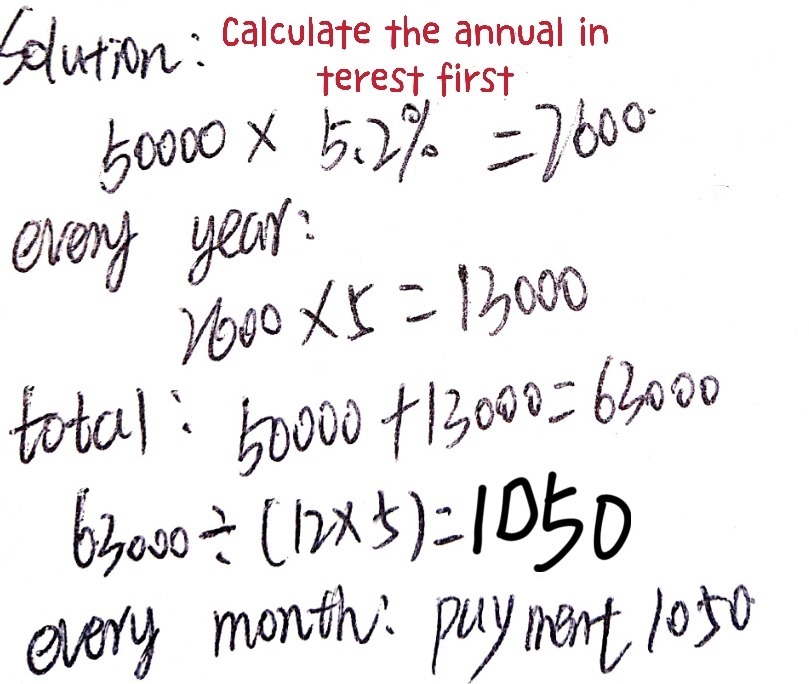 Solution: Calculate the annual in
terest first
50000 × 5.2% = 2600.
every year:
2600 × 5 = 13000
total: 50000 + 13000 = 63000
63000 ÷ (12 × 5) = 1050
every month: payment 1050